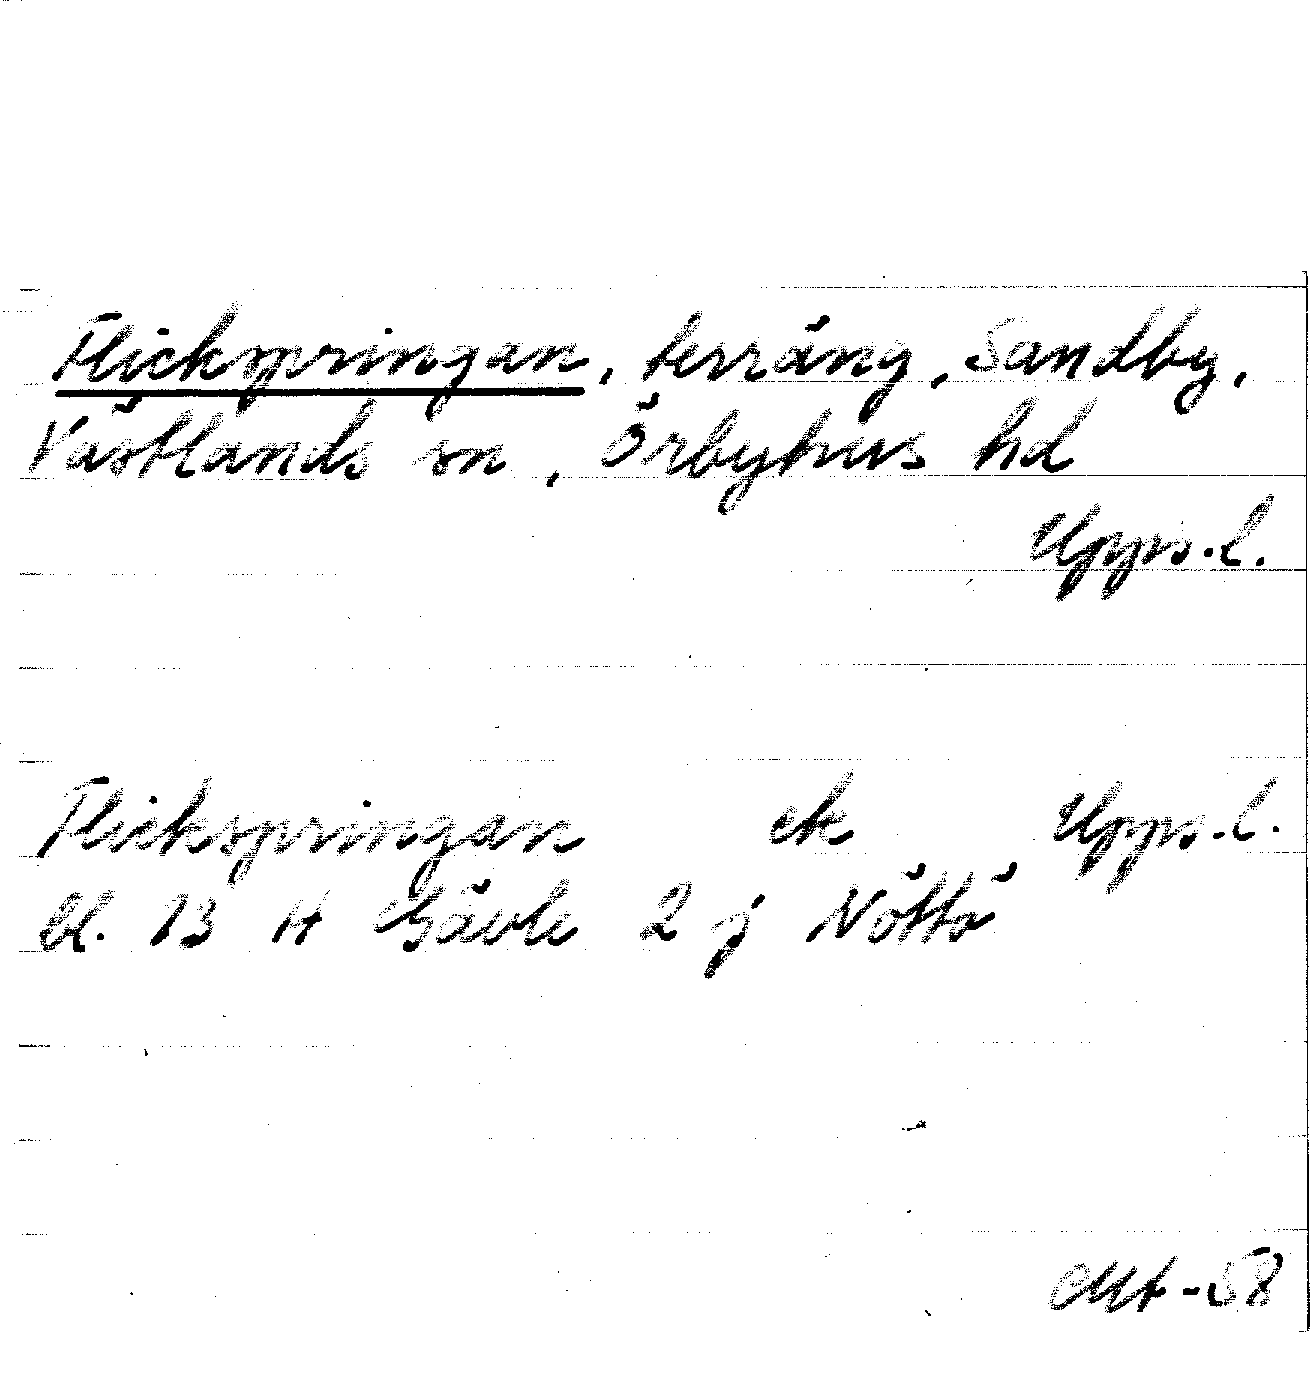 Flickspringan, terräng, Sandby,
Västlands sn, Örbyhus hd
Upps.l.
Flickspringan ek Upps.l.
bl. 13 H Gävle 2 j Nöttö
-58